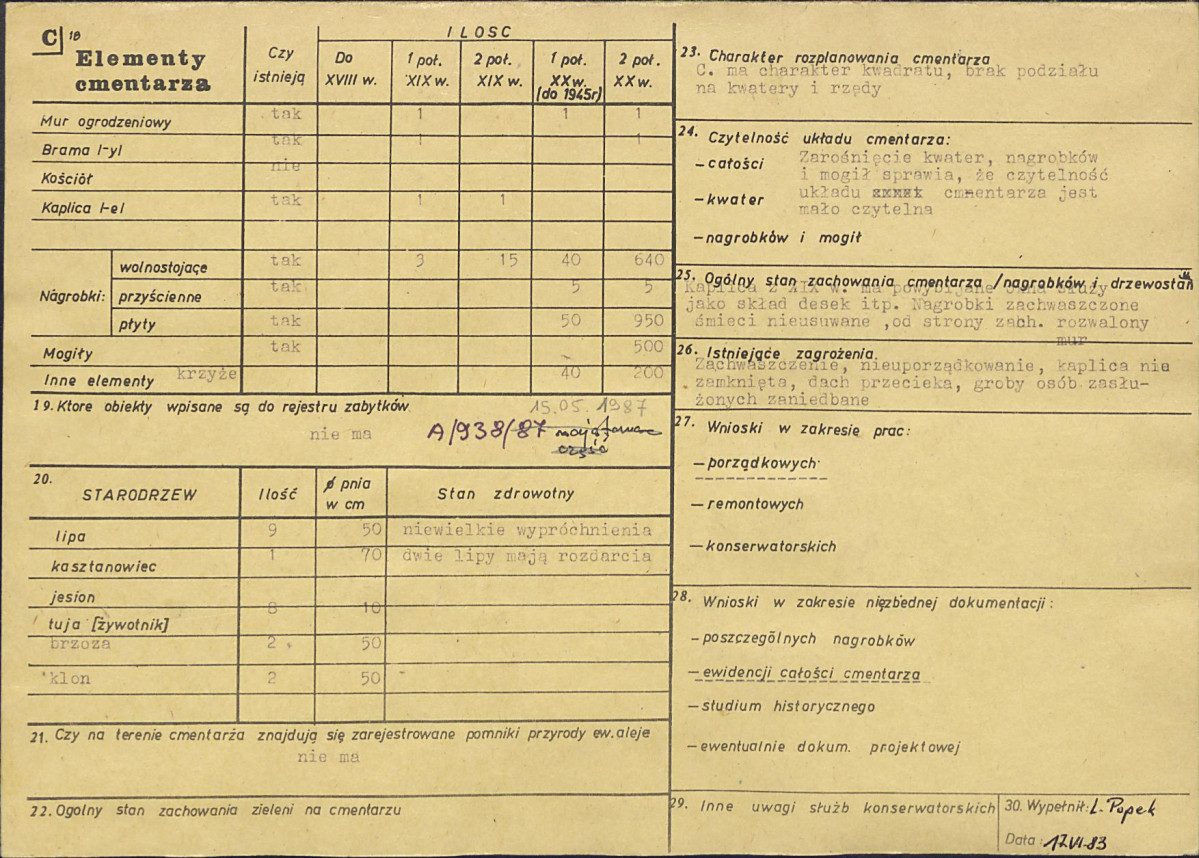 C 18
Elementy
cmentarza
Czy
istnieją
ILOSC
Do
XVIII w.
1 poł.
XIX w.
2 poł.
XIX w.
1 poł.
XX w.
(do 1945r)
2 poł.
XX w.
Mur ogrodzeniowy tak 1 1 1
Brama I-yl tak 1 1
Kościół nie
Kaplica I-el tak 1 1
Nagrobki:
wolnostojące tak 3 15 40 640
przyścienne tak 5 5
płyty tak 50 950
Mogiły tak 500
Inne elementy krzyże 40 200
19. Ktore obiekty wpisane są do rejestru zabytków
nie ma
15.05.1987
A/938/87
część
20.
STARODRZEW
Ilość
ø pnia
w cm
Stan zdrowotny
lipa 9 50 niewielkie wypróchnienia
kasztanowiec 1 70 dwie lipy mają rozdarcia
jesion
tuja [żywotnik] 8 10
brzoza 2 50
klon 2 50
21. Czy na terenie cmentarza znajdują się zarejestrowane pomniki przyrody ew. aleje
nie ma
22. Ogolny stan zachowania zieleni na cmentarzu
23. Charakter rozplanowania cmentarza
C. ma charakter kwadratu, brak podziału
na kwatery i rzędy
24. Czytelność układu cmentarza:
- całości
- kwater
- nagrobków i mogił
Zarośnięcie kwater, nagrobków
i mogił sprawia, że czytelność
układu cmnentarza jest
mało czytelna
25. Ogólny stan zachowania cmentarza /nagrobków i drzewostan
Kaplica z XIX w. ma powybijane okna służy
jako skład desek itp. Nagrobki zachwaszczone
śmieci nieusuwane ,od strony zach. rozwalony
mur
26. Istniejące zagrożenia.
Zachwaszczenie, nieuporządkowanie, kaplica nie
zamknięta, dach przecieka, groby osób zasłu-
żonych zaniedbane
27. Wnioski w zakresie prac:
- porządkowych
- remontowych
- konserwatorskich
28. Wnioski w zakresie niezbędnej dokumentacji:
- poszczególnych nagrobków
- ewidencji całości cmentarza
- studium historycznego
- ewentualnie dokum. projektowej
29. Inne uwagi służb konserwatorskich
30. Wypełnił: L. Popek
Data: 17.VI.83